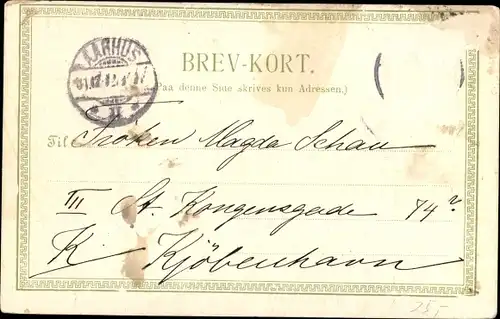 AARHUS
BREV-KORT.
(Paa denne Side skrives kun Adressen.)
Til Frøken Magda Schau
III St. Kongensgade 74
K Kjöbenhavn
25,-